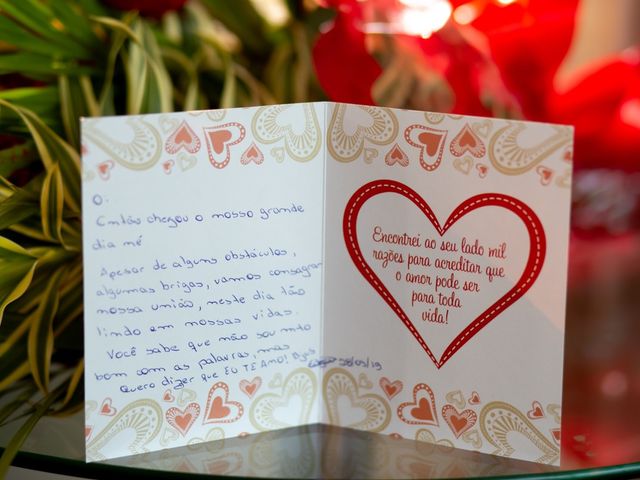 O.
Então chegou o nosso grande
dia né
Apesar de alguns obstáculos,
algumas brigas, vamos consagrar
nossa união, neste dia tão
lindo em nossas vidas.
Você sabe que não sou mto
bom com as palavras, mas
Quero dizer que EU TE AMO!
28/09/19
Encontrei ao seu lado mil
razões para acreditar que
o amor pode ser
para toda
vida!